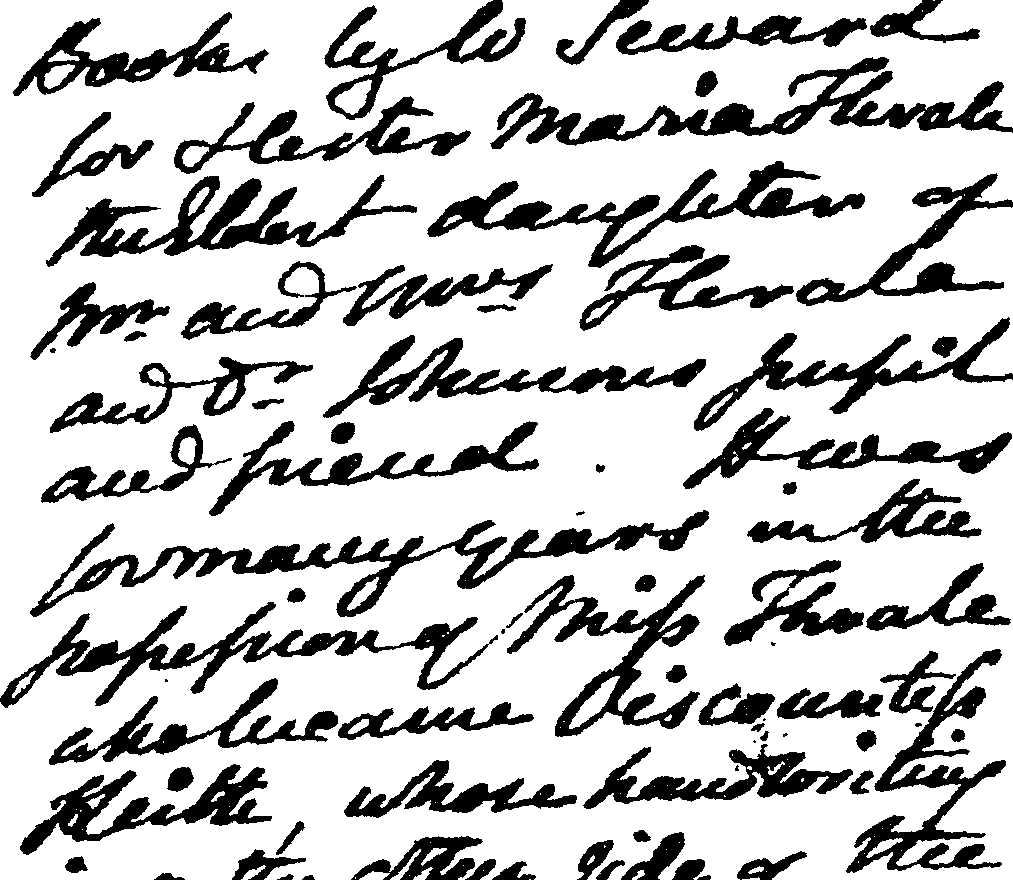 Books by W Seward
for Hester Maria Thrale
the Eldest daughter of
Mr and Mrs Thrale
and Dr Johnsons pupil
and friend. It was
for many years in the
possession of Miss Thrale
who became Viscountess
Keith, whose handwriting
on the other side of the